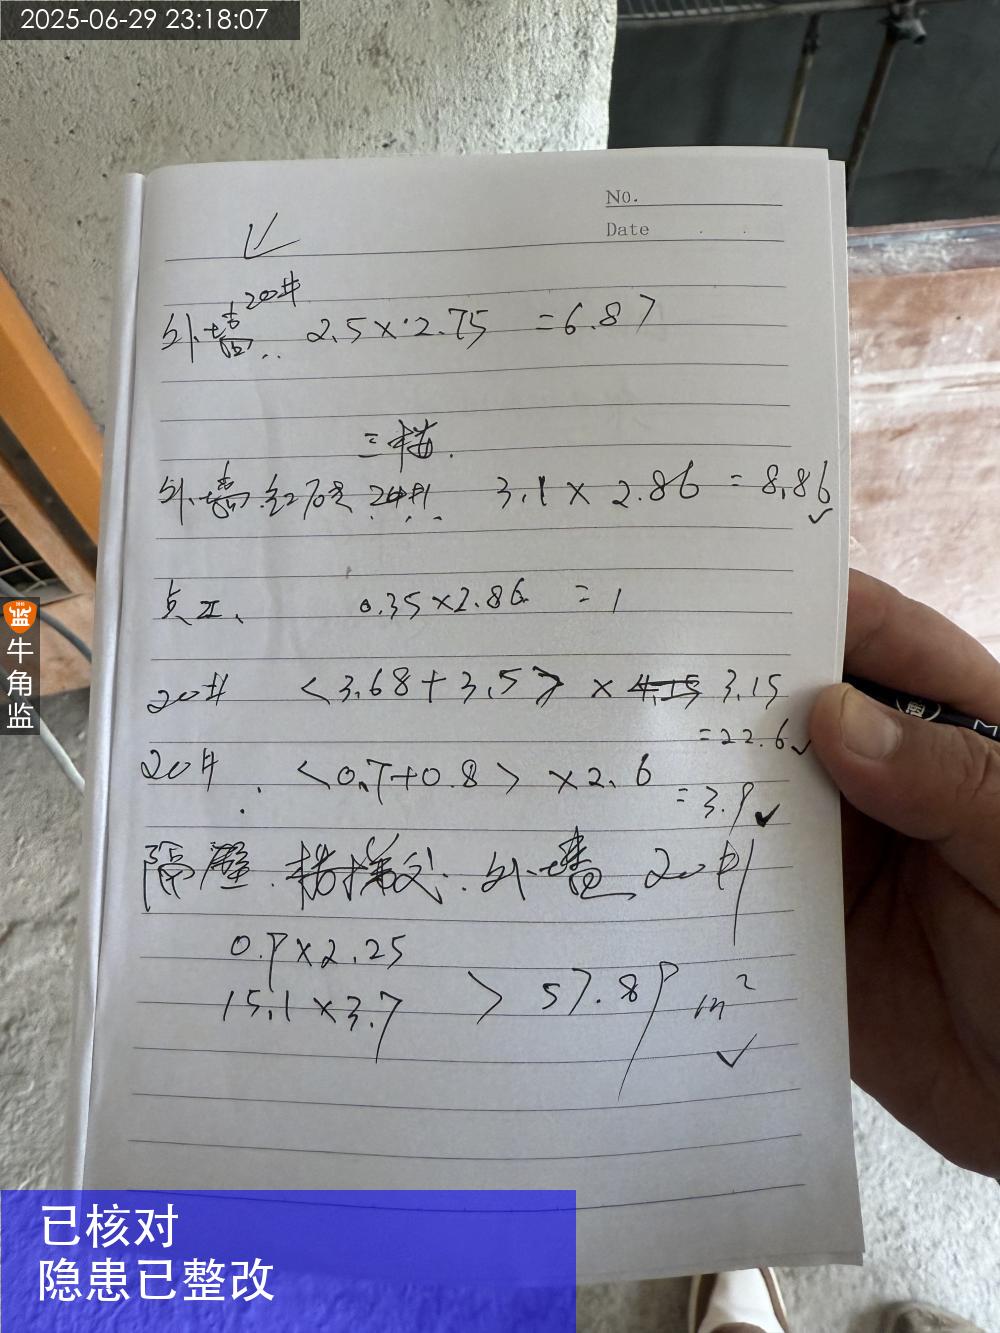 2025-06-29 23:18:07
No.
Date
20#
外墙: 2.5×2.75 =6.87
三楼.
外墙 红砖 24# 3.1×2.86 = 8.86
点工、 0.35×2.86 = 1
20# <3.68+3.5> × 4.15 3.15
=22.6
20# : <0.7+0.8> ×2.6
=3.9
隔壁. 楼梯 外墙 20#
0.9×2.25
15.1×3.7 > 57.89 m²
牛角监
已核对
隐患已整改